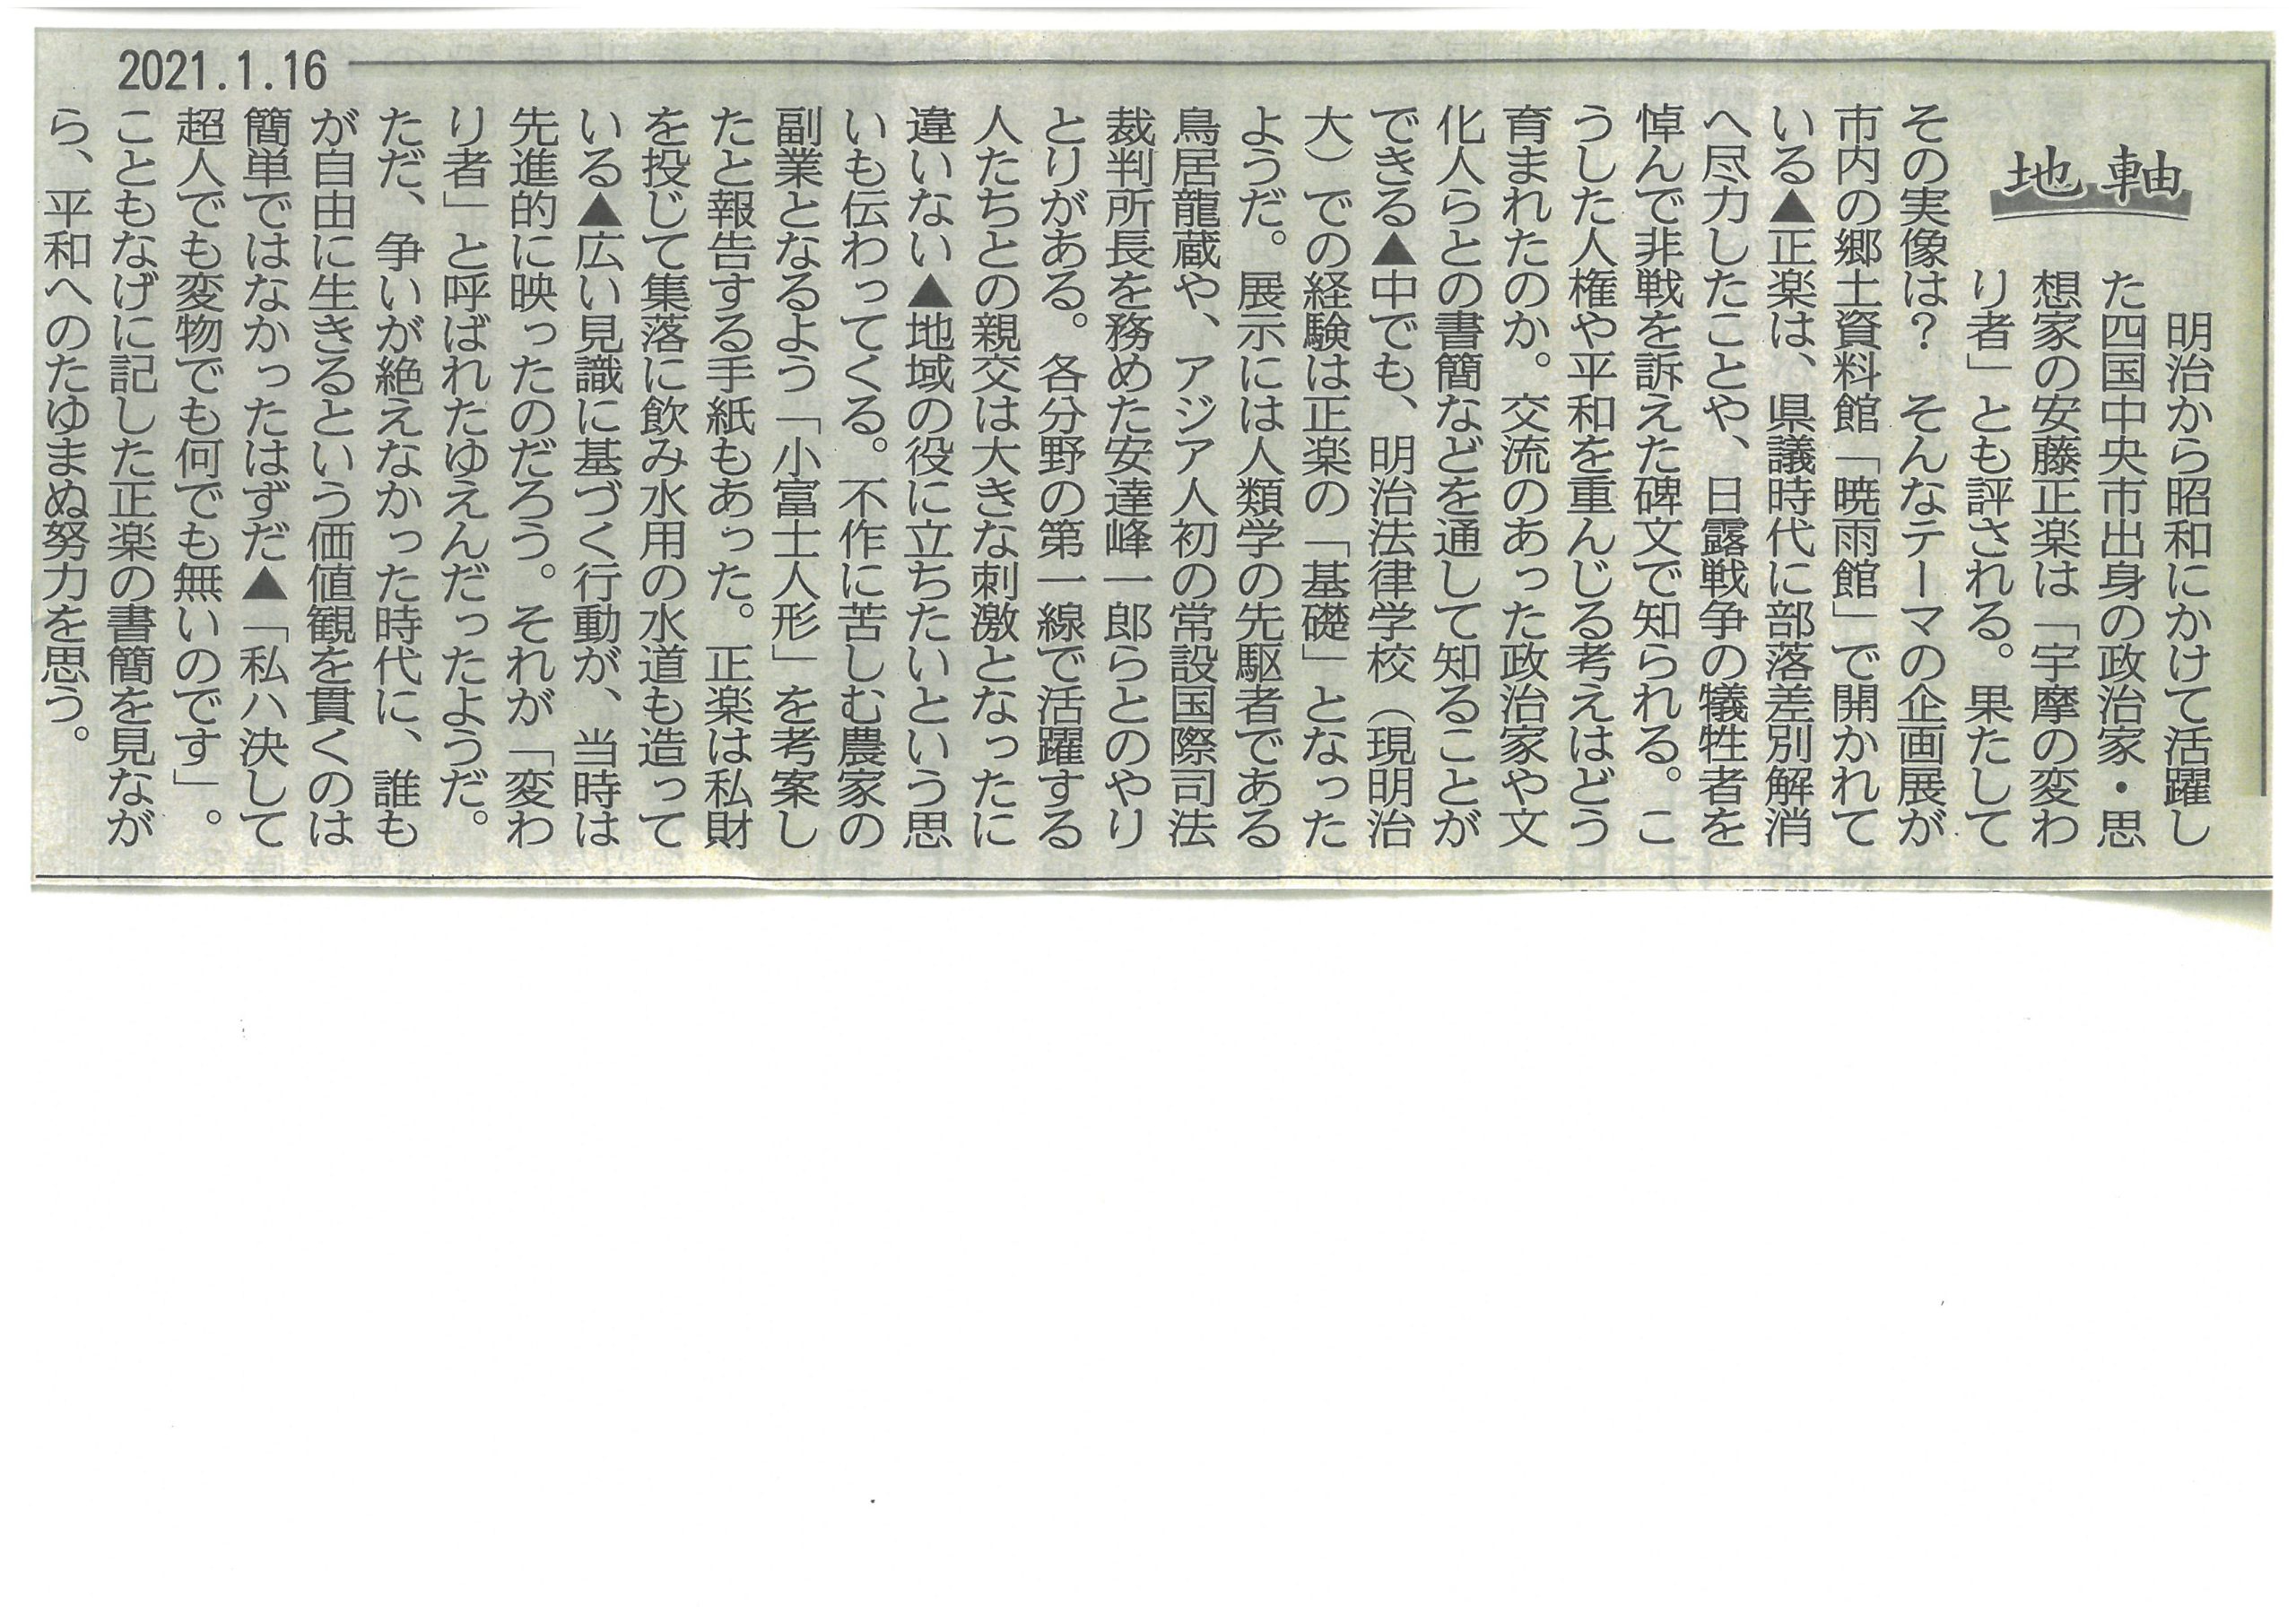 地軸
明治から昭和にかけて活躍し
た四国中央市出身の政治家・思
想家の安藤正楽は「宇摩の変わ
り者」とも評される。果たして
その実像は？　そんなテーマの企画展が
市内の郷土資料館「暁雨館」で開かれて
いる▲正楽は、県議時代に部落差別解消
へ尽力したことや、日露戦争の犠牲者を
悼んで非戦を訴えた碑文で知られる。こ
うした人権や平和を重んじる考えはどう
育まれたのか。交流のあった政治家や文
化人らとの書簡などを通して知ることが
できる▲中でも、明治法律学校（現明治
大）での経験は正楽の「基礎」となった
ようだ。展示には人類学の先駆者である
鳥居龍蔵や、アジア人初の常設国際司法
裁判所長を務めた安達峰一郎らとのやり
とりがある。各分野の第一線で活躍する
人たちとの親交は大きな刺激となったに
違いない▲地域の役に立ちたいという思
いも伝わってくる。不作に苦しむ農家の
副業となるよう「小富士人形」を考案し
たと報告する手紙もあった。正楽は私財
を投じて集落に飲み水用の水道も造って
いる▲広い見識に基づく行動が、当時は
先進的に映ったのだろう。それが「変わ
り者」と呼ばれたゆえんだったようだ。
ただ、争いが絶えなかった時代に、誰も
が自由に生きるという価値観を貫くのは
簡単ではなかったはずだ▲「私ハ決して
超人でも変物でも何でも無いのです」。
こともなげに記した正楽の書簡を見なが
ら、平和へのたゆまぬ努力を思う。
2021.1.16